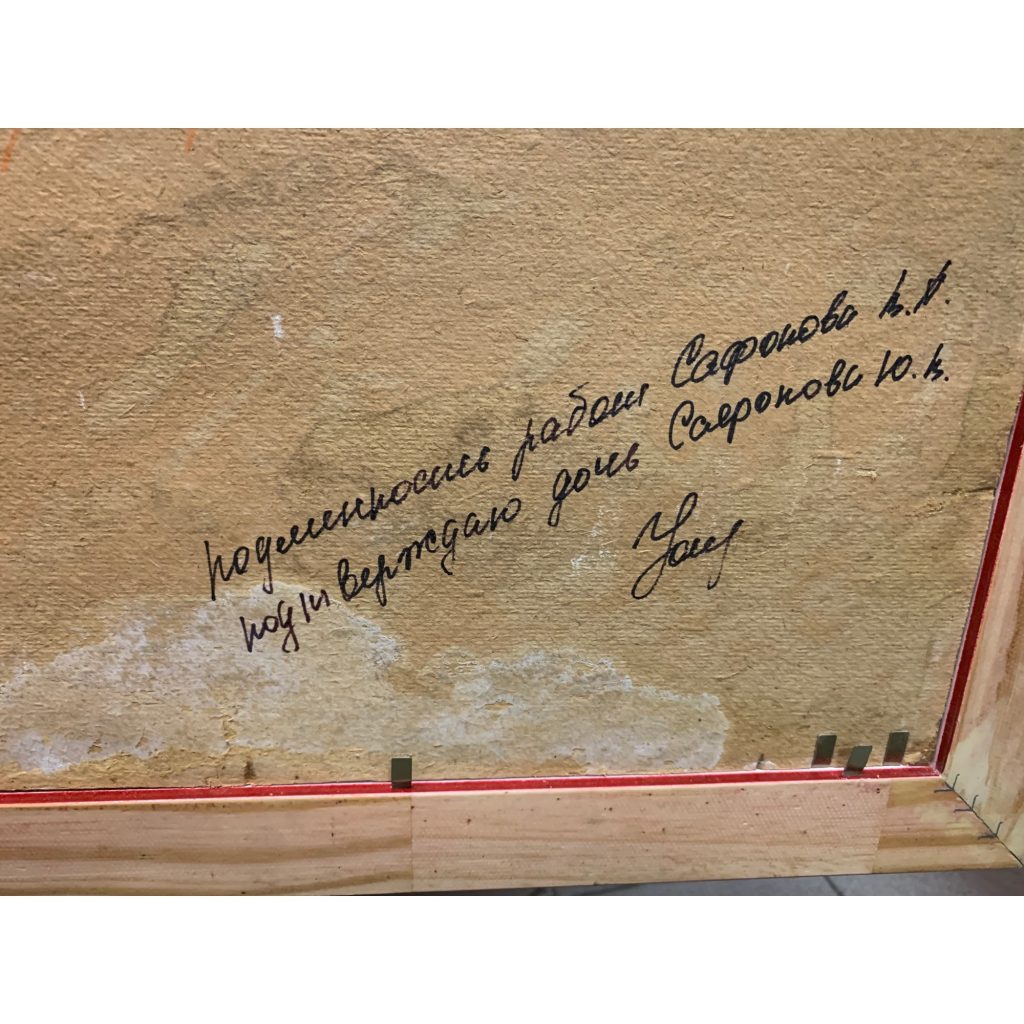 подлинность работ Сафонова В.А.
подтверждаю дочь Сафронова Ю.В.